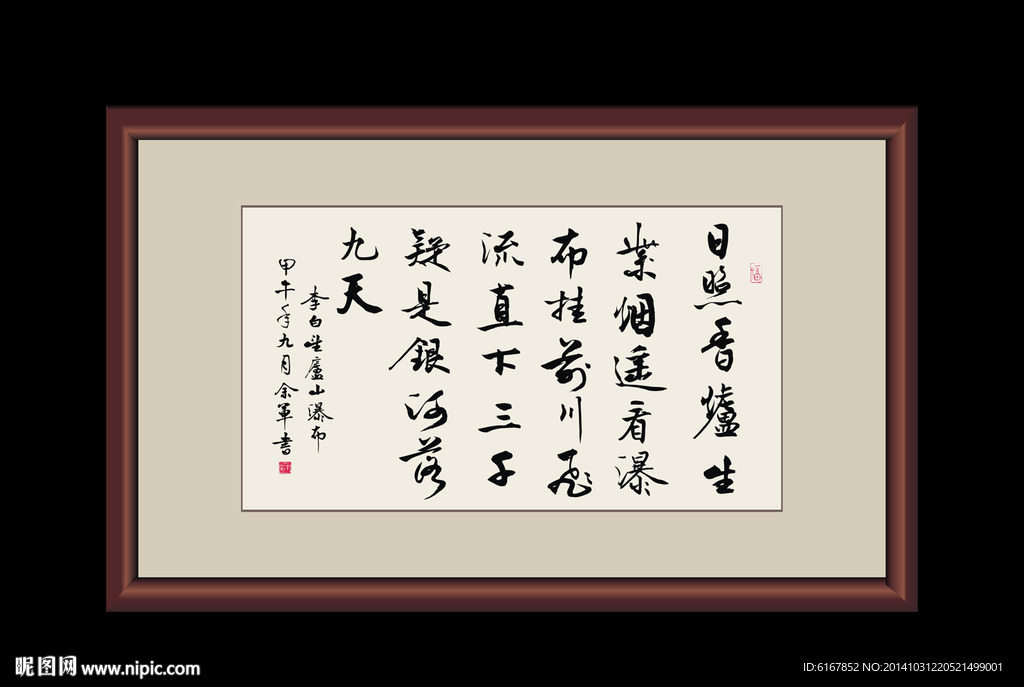 日照香爐生
紫烟遥看瀑
布挂前川飛
流直下三千
疑是銀河落
九天
李白望廬山瀑布
甲午年九月余軍書
昵图网 www.nipic.com
ID:6167852 NO:20141031220521499001